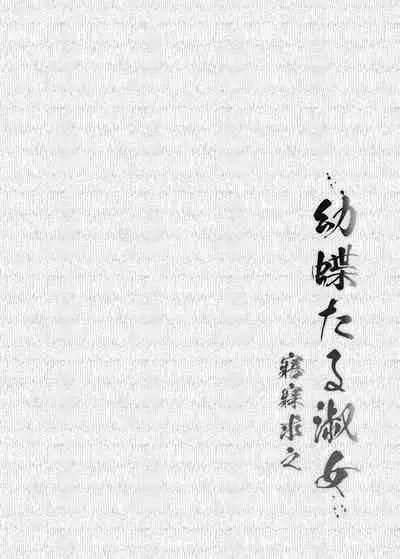 幼蝶たる淑女
寤寐求之